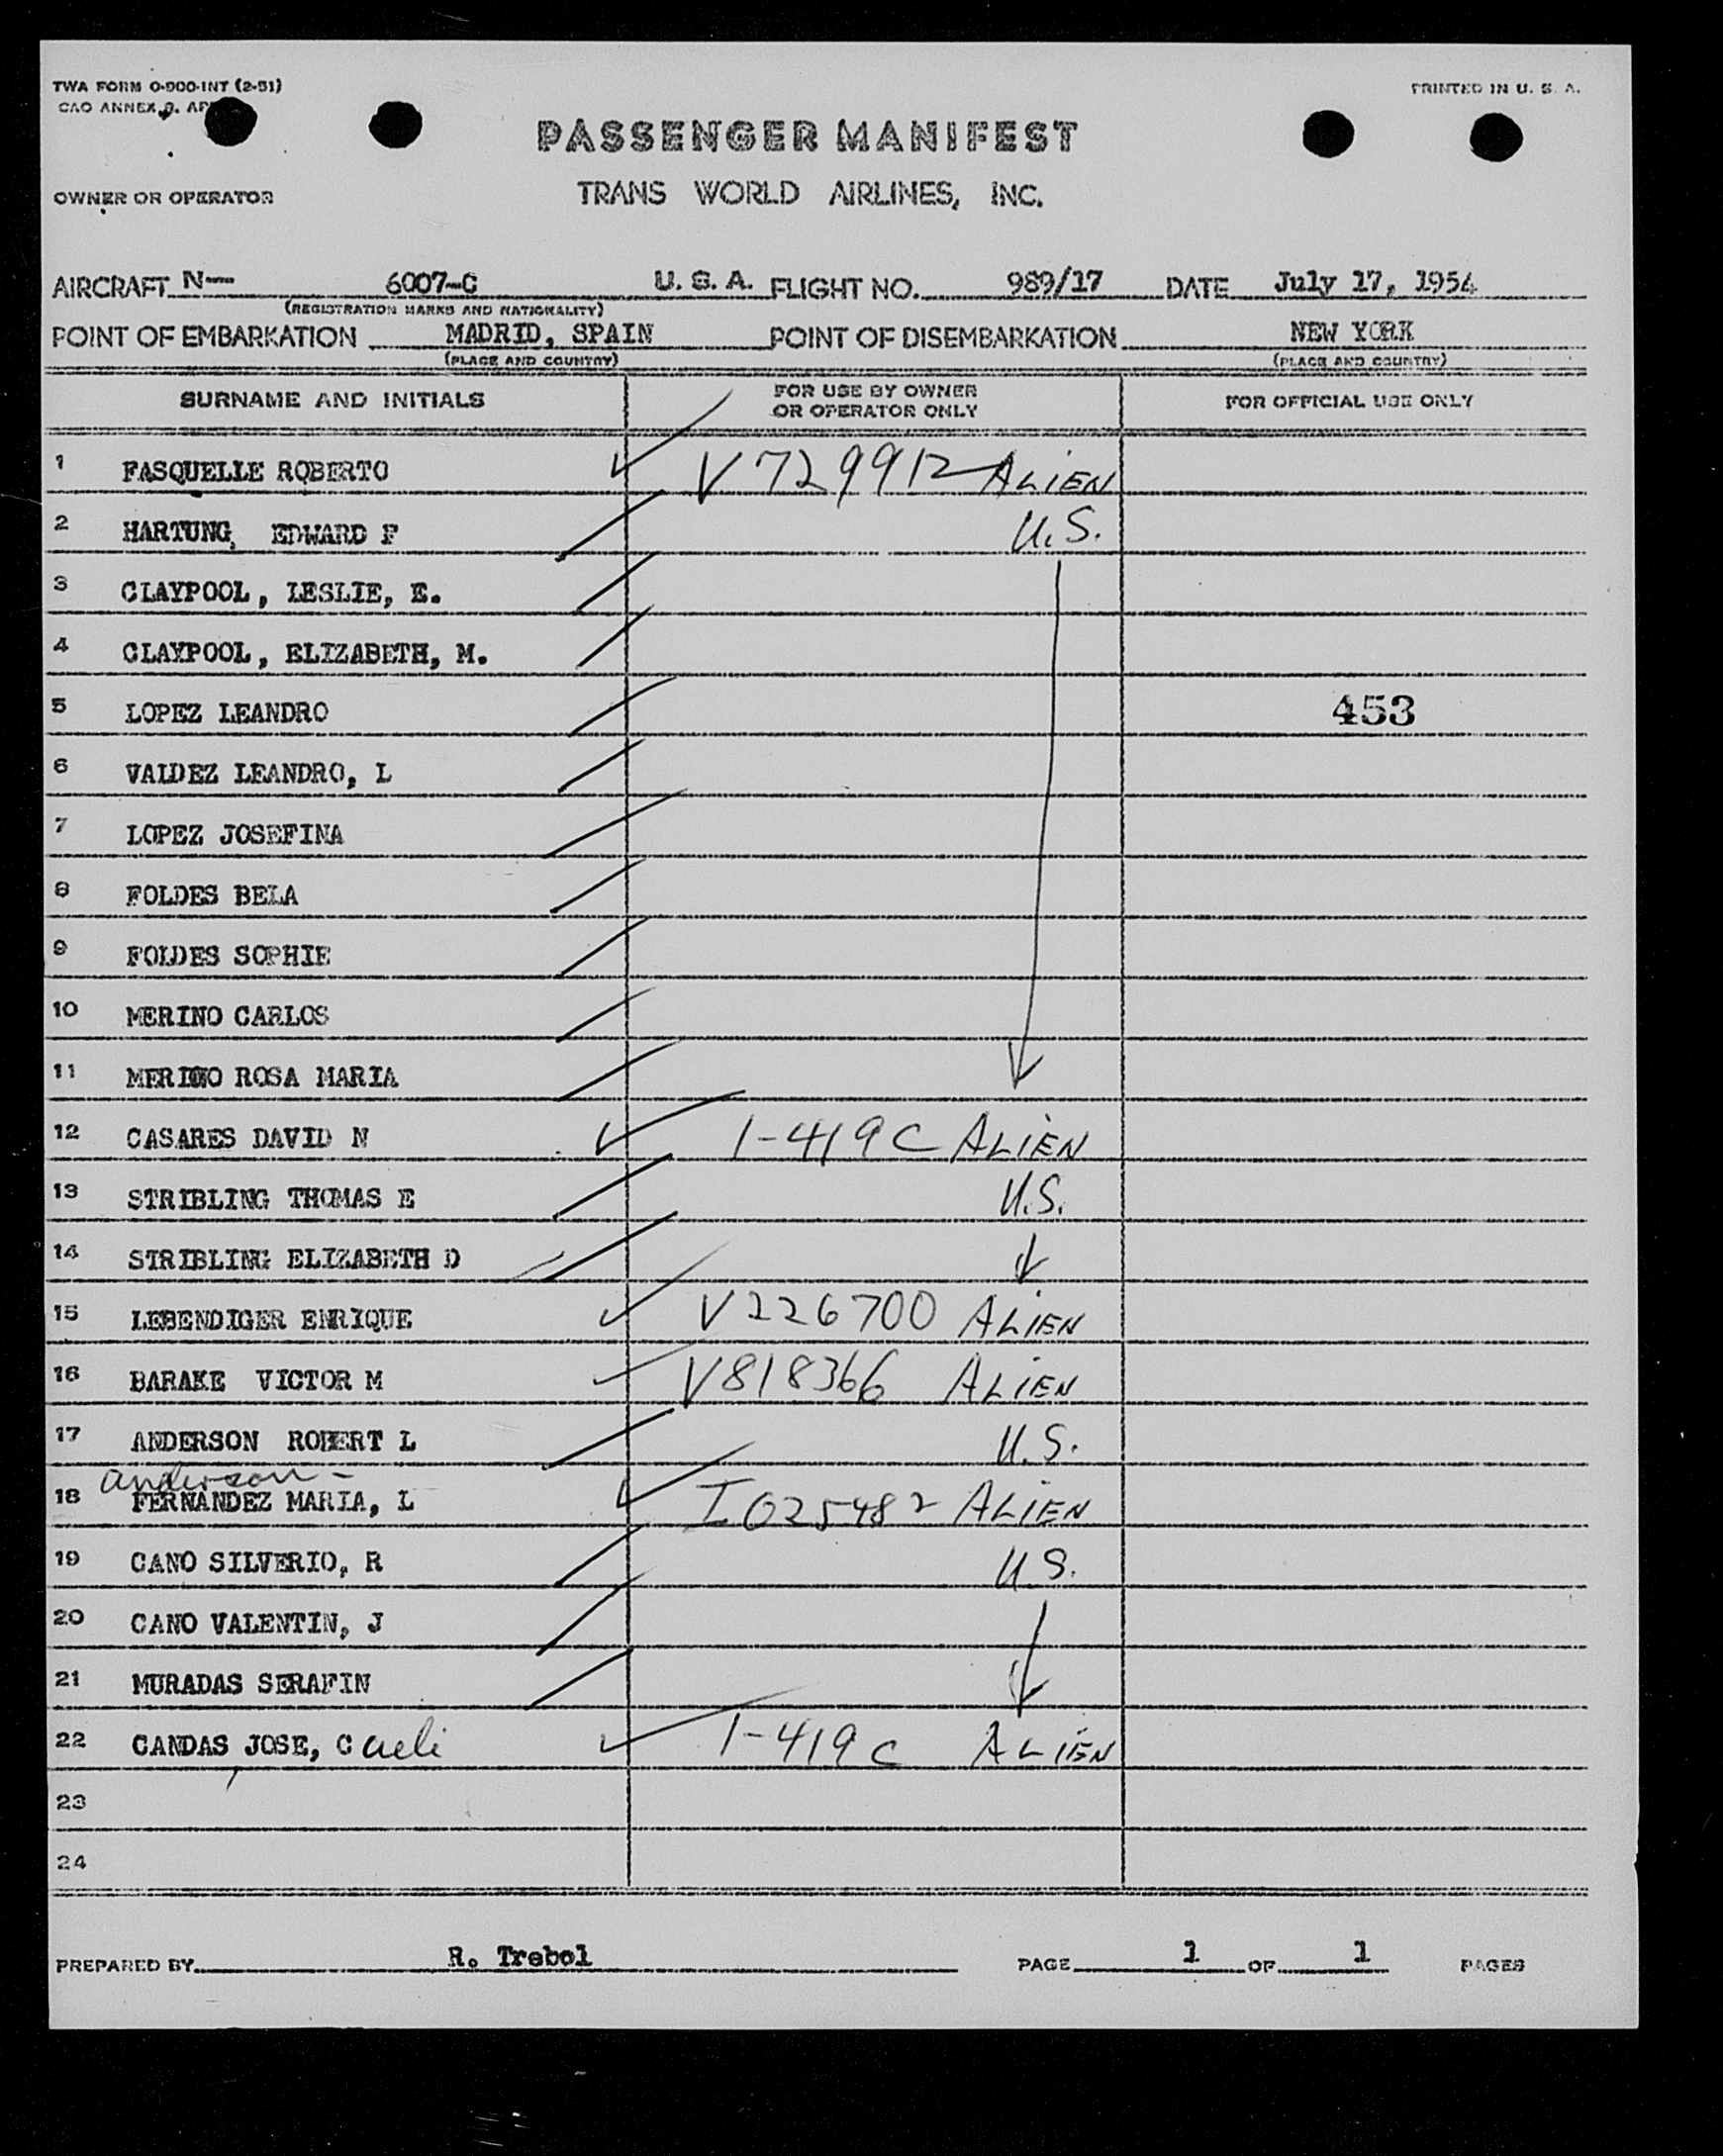 TWA FORM O-900-INT (2-51)
PRINTED IN U. S. A.
CAO ANNEX 9. AP
PASSENGER MANIFEST
OWNER OR OPERATOR
TRANS WORLD AIRLINES, INC.
AIRCRAFT N— 6007-C U. S. A. FLIGHT NO. 989/17 DATE July 17, 1954
(REGISTRATION MARKS AND NATIONALITY)
POINT OF EMBARKATION MADRID, SPAIN POINT OF DISEMBARKATION NEW YORK
(PLACE AND COUNTRY) (PLACE AND COUNTRY)
SURNAME AND INITIALS FOR USE BY OWNER OR OPERATOR ONLY FOR OFFICIAL USE ONLY
1 FASQUELLE ROBERTO V 729912 ALIEN
2 HARTUNG, EDWARD F U.S.
3 CLAYPOOL, LESLIE, E.
4 CLAYPOOL, ELIZABETH, M.
5 LOPEZ LEANDRO 453
6 VALDEZ LEANDRO, L
7 LOPEZ JOSEFINA
8 FOLDES BELA
9 FOLDES SOPHIE
10 MERINO CARLOS
11 MERINO ROSA MARIA
12 CASARES DAVID N 1-419C ALIEN
13 STRIBLING THOMAS E U.S.
14 STRIBLING ELIZABETH D
15 LEBENDIGER ENRIQUE V226700 ALIEN
16 BARAKE VICTOR M V818366 ALIEN
17 ANDERSON ROBERT L U.S.
anderson -
18 FERNANDEZ MARIA, L I 025482 ALIEN
19 CANO SILVERIO, R U.S.
20 CANO VALENTIN, J
21 MURADAS SERAFIN
22 CANDAS JOSE, C 1-419c ALIEN
23
24
PREPARED BY R. Trebol PAGE 1 OF 1 PAGES